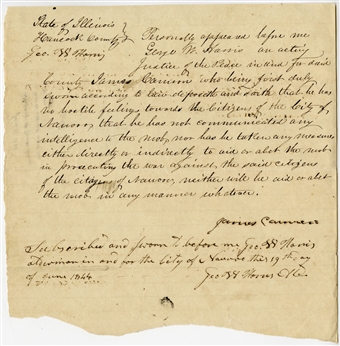 State of Illinois }
Hancock County }
Geo. W Harris
Personally appeared before me
George W. Harris an acting
Justice of the Peace in and for said
County James Camren who being first duly
sworn according to law deposeth and saith that he has
no hostile feelings towards the Citizens of the City of
Nauvoo, that he has not communicated any
intelligence to the mob, nor has he taken any measures
either directly or indirectly to aid or abet the mob
in prosecuting the war against the said citizens
of the citizens of Nauvoo, neither will he aid or abet
the mob in any manner whatever.
James Camren
Subscribed and sworn to before me Geo. W Harris
alderman in and for the City of Nauvoo this 19th day
of June 1844
Geo. W Harris